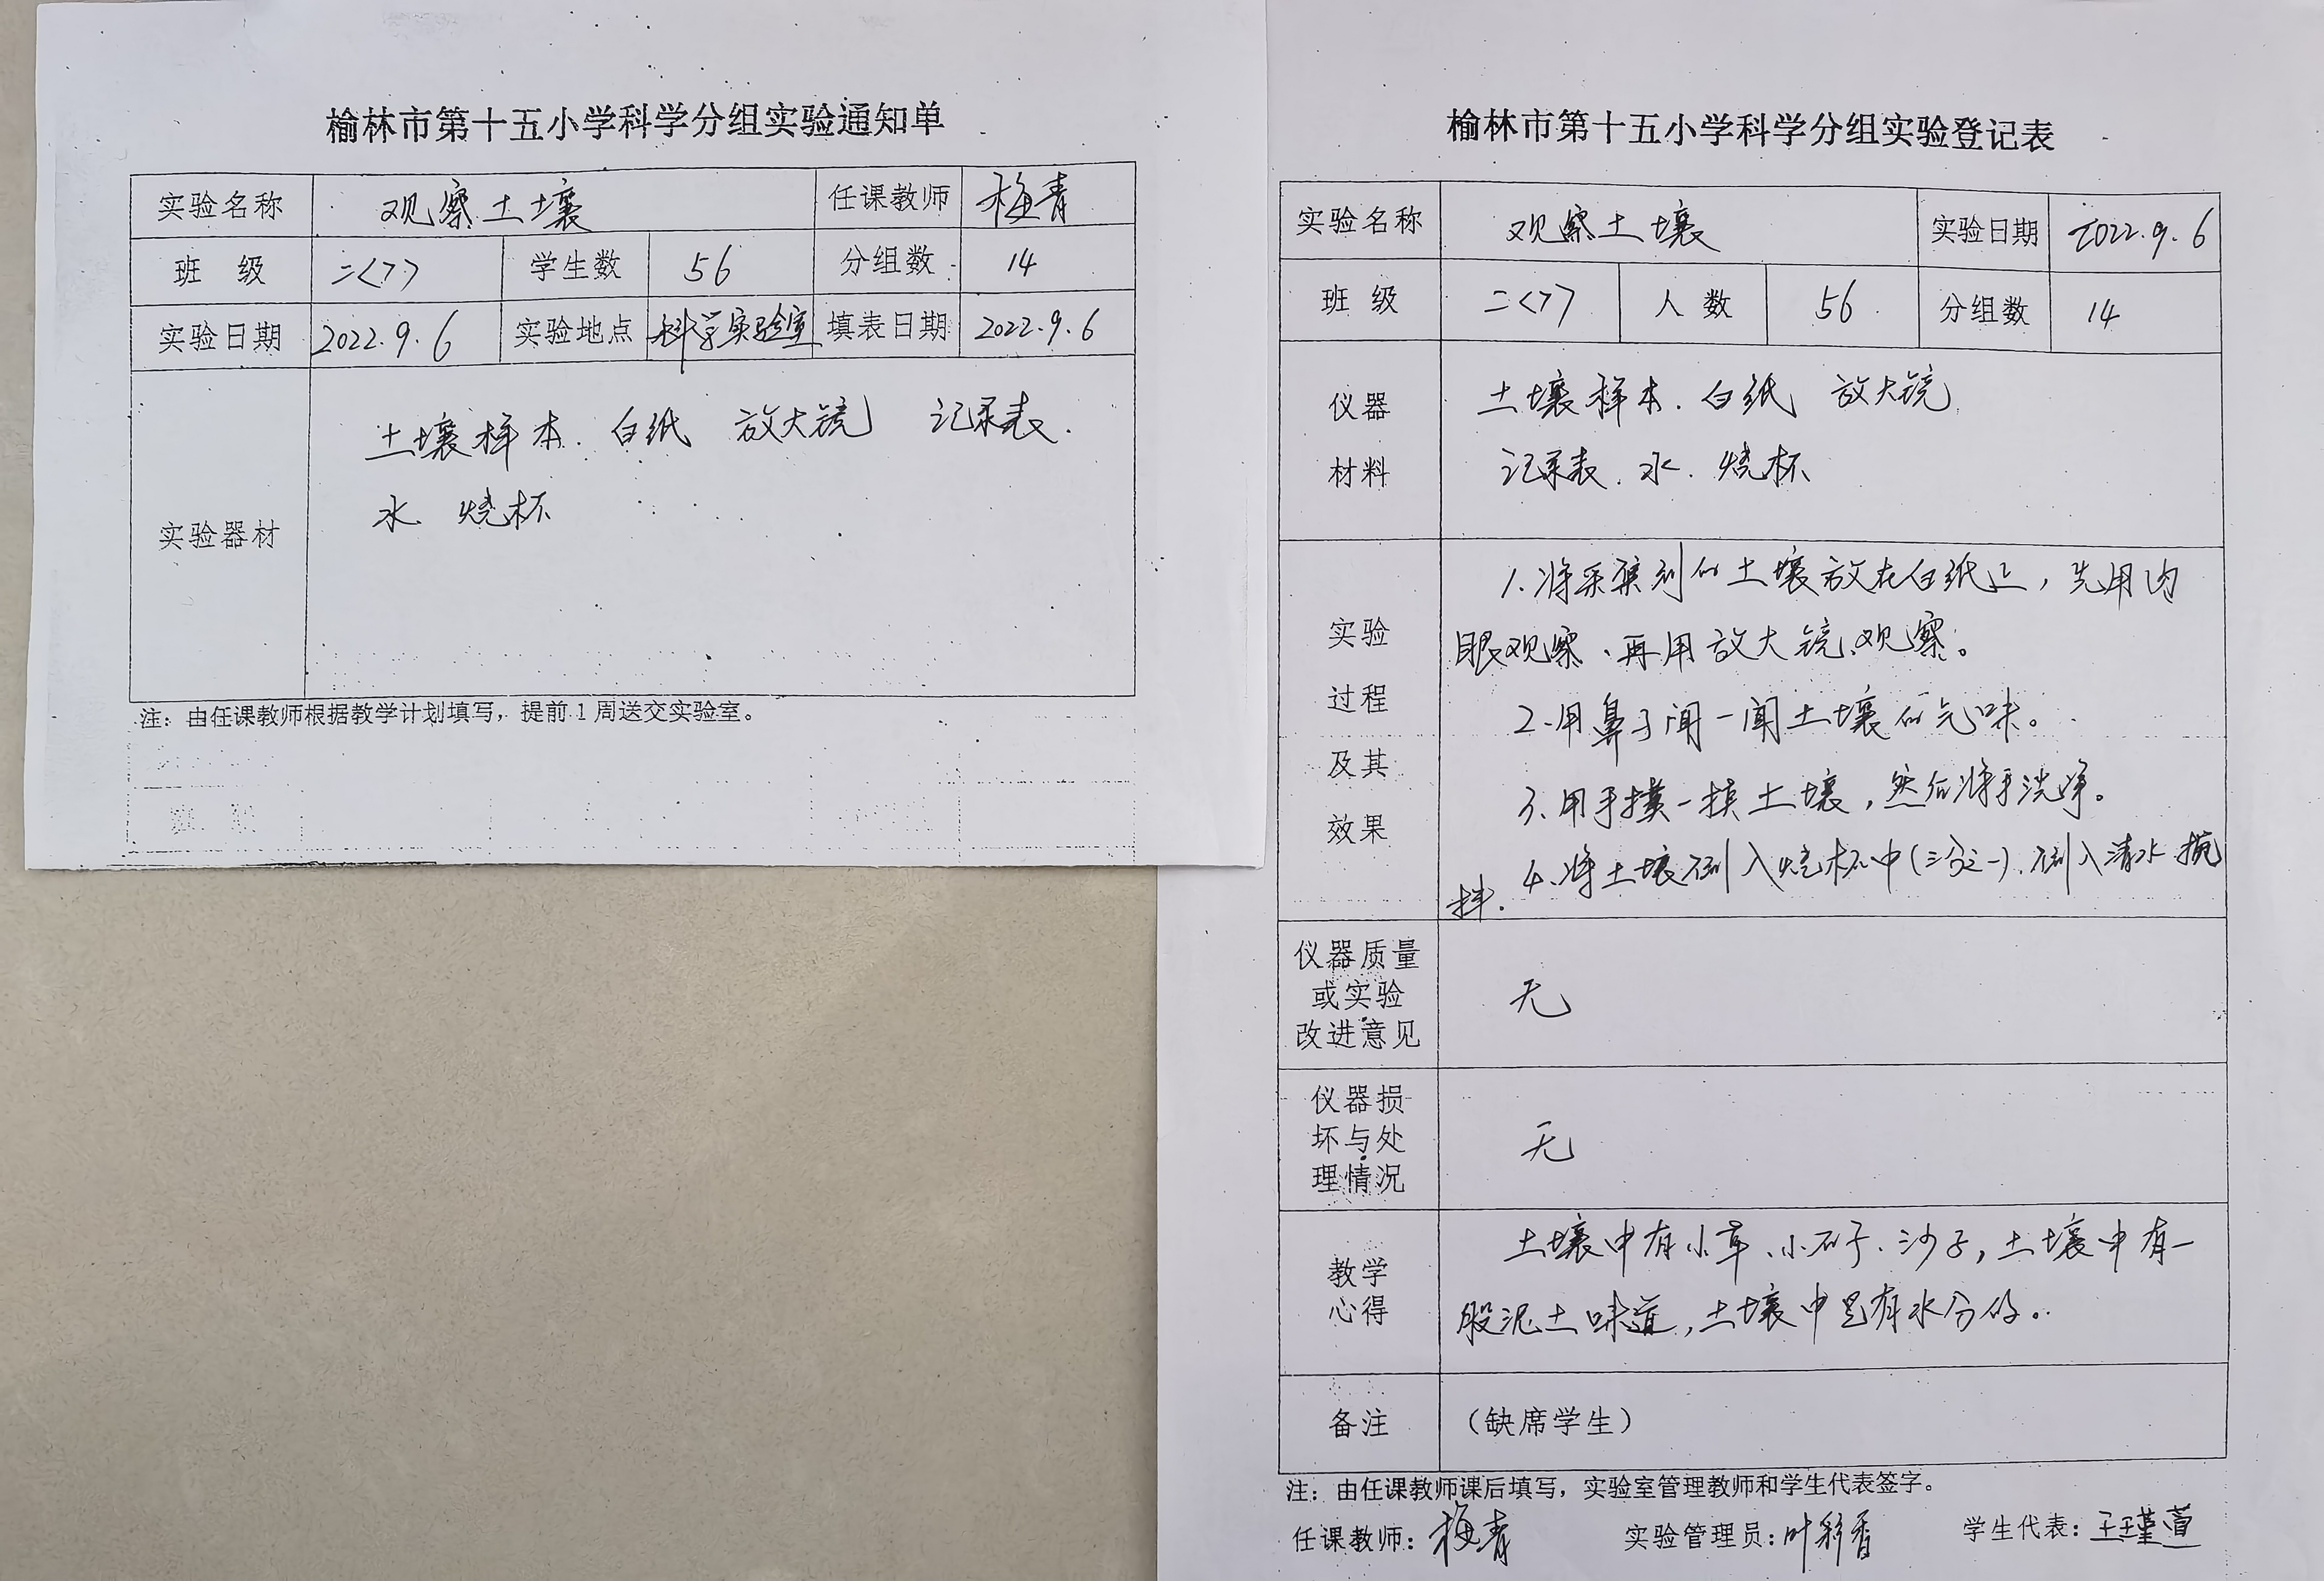 榆林市第十五小学科学分组实验通知单
实验名称 观察土壤 任课教师 梅青
班 级 二<7> 学生数 56 分组数 14
实验日期 2022.9.6 实验地点 科学实验室 填表日期 2022.9.6
实验器材
土壤样本、白纸 放大镜 记录表.
水 烧杯
注：由任课教师根据教学计划填写，提前1周送交实验室。
榆林市第十五小学科学分组实验登记表
实验名称 观察土壤 实验日期 2022.9.6
班 级 二<7> 人 数 56 分组数 14
仪器
材料
土壤样本、白纸 放大镜
记录表、水、烧杯
实验
过程
及其
效果
1.将采集到的土壤放在白纸上，先用肉
眼观察、再用放大镜观察。
2.用鼻子闻一闻土壤的气味。
3.用手摸一摸土壤，然后将手洗净。
4.将土壤倒入烧杯中(三分之一)、倒入清水搅
拌.
仪器质量
或实验
改进意见
无
仪器损
坏与处
理情况
无
教学
心得
土壤中有小草、小石子、沙子，土壤中有一
股泥土味道，土壤中是有水分的。
备注 （缺席学生）
注：由任课教师课后填写，实验室管理教师和学生代表签字。
任课教师：梅青 实验管理员：叶彩香 学生代表：王瑾萱